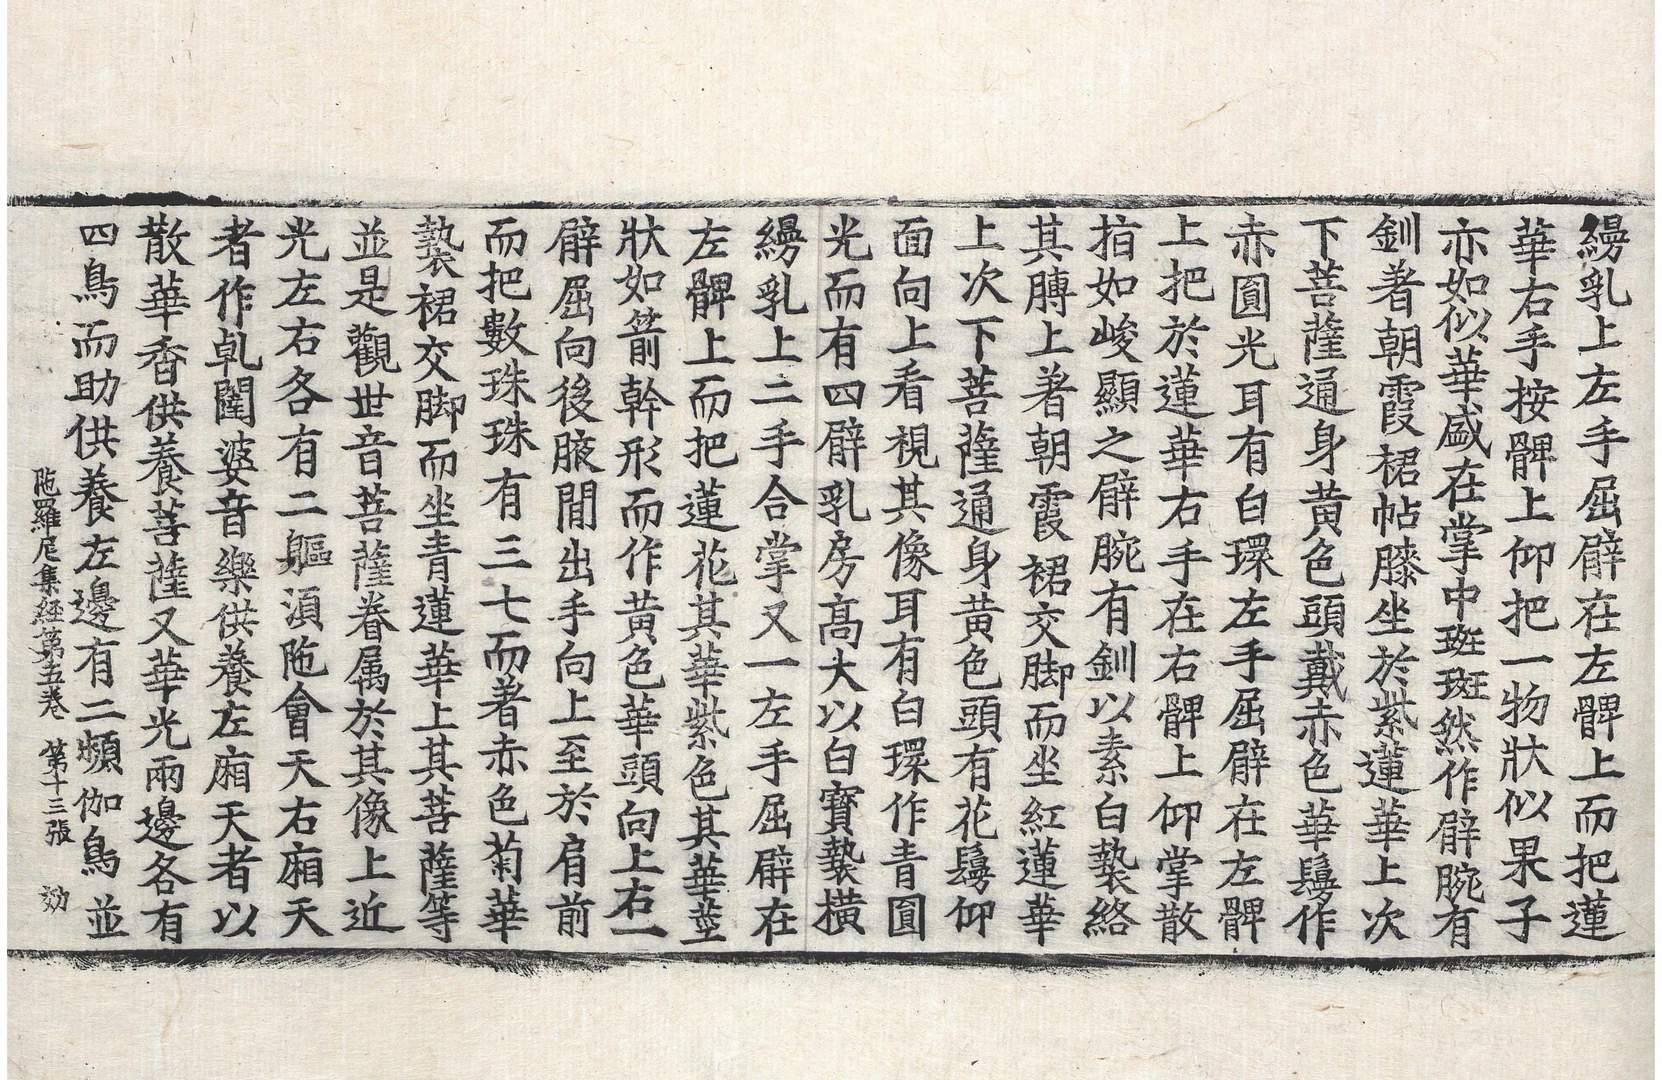 縵乳上左手屈臂在左髀上而把蓮
華右手按髀上仰把一物狀似果子
亦如似華盛在掌中斑斑然作臂腕有
釧著朝霞裙帖膝坐於紫蓮華上次
下菩薩通身黃色頭戴赤色華鬘作
赤圓光耳有白環左手屈臂在左髀
上把於蓮華右手在右髀上仰掌散
指如峻顯之臂腕有釧以素白㲲絡
其膊上著朝霞裙交脚而坐紅蓮華
上次下菩薩通身黃色頭有花鬘仰
面向上看視其像耳有白環作青圓
光而有四臂乳房高大以白寶㲲橫
縵乳上二手合掌又一左手屈臂在
左髀上而把蓮花其華紫色其華莖
狀如箭幹形而作黃色華頭向上右一
臂屈向後腋間出手向上至於肩前
而把數珠珠有三七而著赤色菊華
㲲裙交脚而坐青蓮華上其菩薩等
並是觀世音菩薩眷属於其像上近
光左右各有二軀湏陁會天右廂天
者作乹闥婆音樂供養左廂天者以
散華香供養菩薩又華光兩邊各有
四鳥而助供養左邊有二頻伽鳥並
陁羅尼集經第五卷 第十三張 効